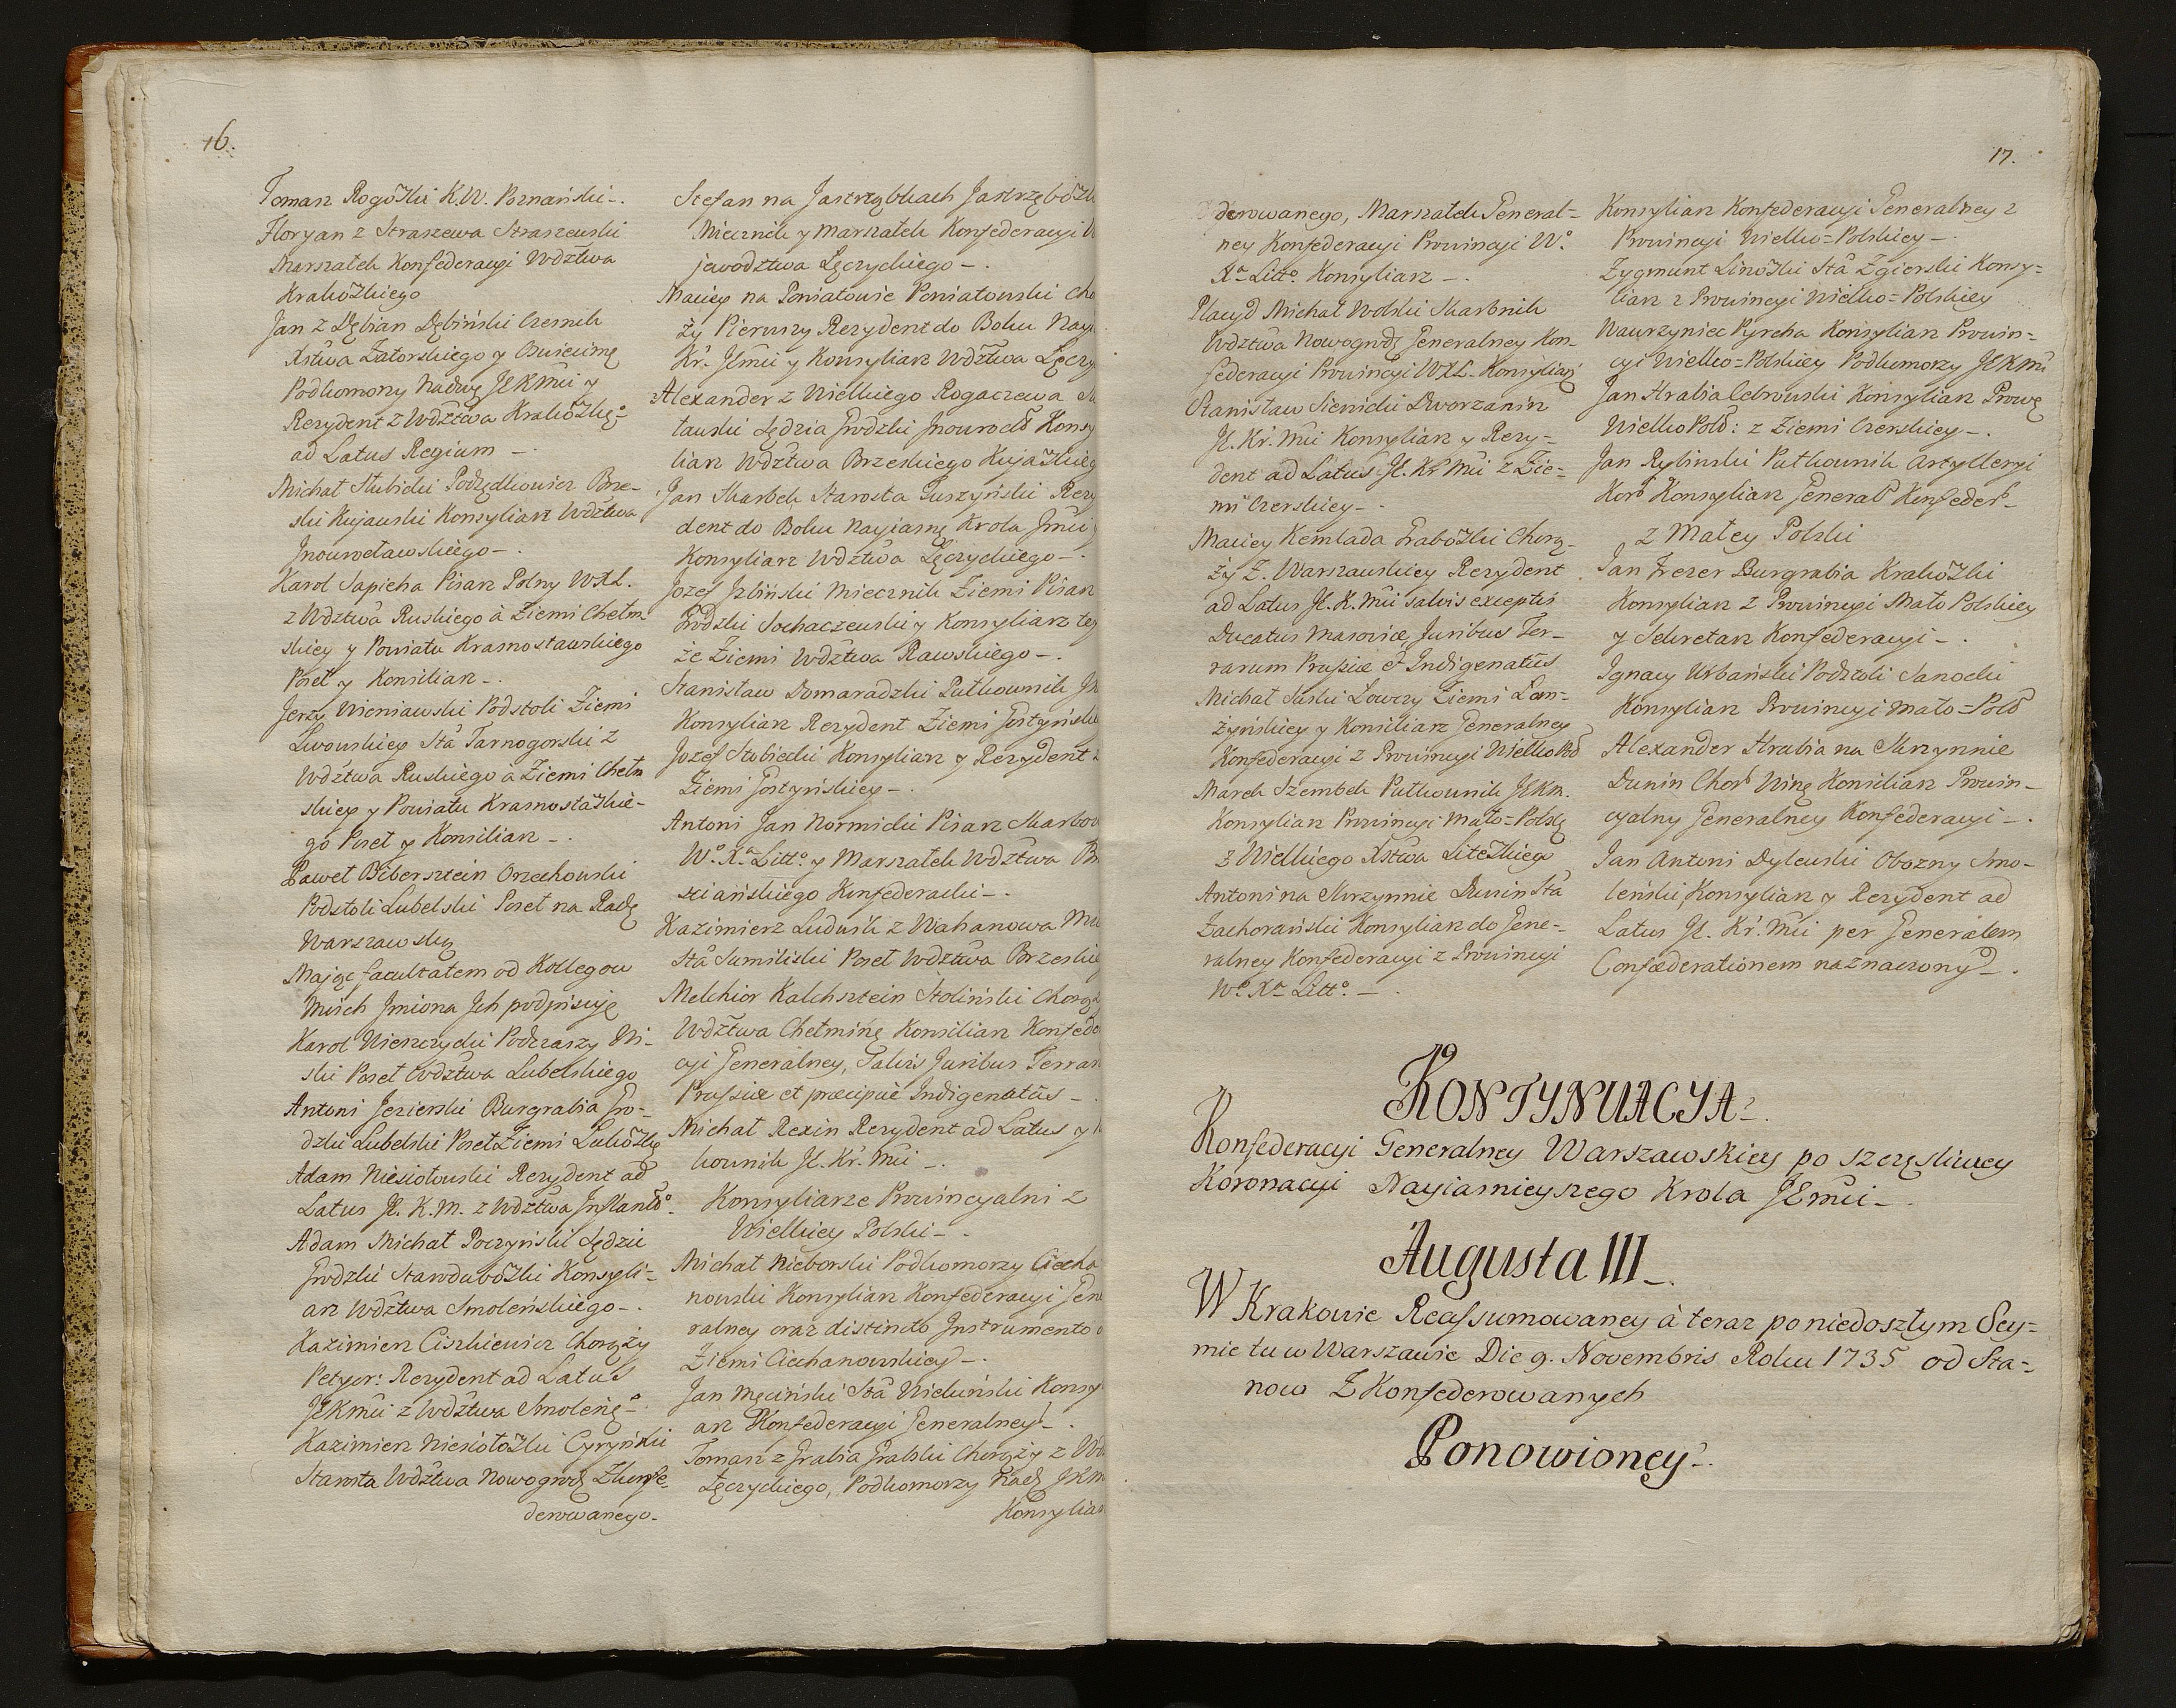 16.
Tomasz Rogoski K.W. Poznański -.
Floryan z Straszewa Straszewski
Marszałek Konfederacyi Wdztwa
Krakoskiego
Jan z Dębian Dębiński Czesnik
Xstwa Zatorskiego y Oswiecimę
Podkomorzy Nadwę JEKMci y
Rezydent z Wdztwa Krakoskię°
ad Latus Regium -.
Michał Słubicki Podzędkowicz Brze-
ski Kujawski Konsyliarz Wdztwa
Jnowrocławskiego -.
Karol Sapieha Pisarz Polny WXL.
z Wdztwa Ruskiego à Ziemi Chełm-
skiey y Powiatu Krasnostawskiego
Poseł y Konsiliarz -.
Jerzy Wieniawski Podstoli Ziemi
Lwowskiey Stâ Tarnogorski z
Wdztwa Ruskiego a Ziemi Chełm
skiey y Powiatu Krasnostaskie-
go Poseł y Konsiliarz -.
Paweł Bibersztein Orzechowski
Podstoli Lubelski Poseł na Radę
Warszawską
Mając facultatem od Kollegow
Moich Jmiona Jch podpisuję
Karol Nieszczycki Podczaszy Wi-
ski Poseł Wdztwa Lubelskiego
Antoni Jezierski Burgrabia Gro-
dzki Lubelski Poseł Ziemi Lukoskę
Adam Niesiołowski Rezydent ad
Latus JE. K. M. z Wdztwa Jnflantt°
Adam Michał Poczyński Sędzic
Grodzki Starodoboski Konsyli-
arz Wdztwa Smoleńskiego -.
Kazimierz Ciszkiewicz Chorąży
Petyor: Rezydent ad Latus
JEKMci z Wdztwa Smoleńę° -
Kazimierz Niesiołoski Cyryński
Starosta Wdztwa Nowogrodz Zkonfe-
derowanego-
Stefan na Jastrząbkach Jastrzębosk
Miecznik y Marszałek Konfederacyi W
jewodztwa Lęczyckiego -.
Maciey na Poniatowie Poniatowski Cho
ży Pierwszy Rezydent do Boku Nay
Kr. JEmci y Konsyliarz Wdztwa Lęczy
Alexander z Wielkiego Rogaczewa
tauski Sędzia Grodzki Jnowrocł Konsy
liarz Wdztwa Brzeskiego Kujaskieg
Jan Skarbek Starosta Guszyński Rezy
dent do Boku Nayiasnę Krola Jmci
Konsyliarz Wdztwa Lęczyckiego -.
Jozef Jzbiński Miecznik Ziemi Pisarz
Grodzki Sochaczewski y Konsyliarz tey
że Ziemi Wdztwa Rawskiego -.
Stanisław Domaradzki Pułkownik JK
Konsyliarz Rezydent Ziemi Gostyńskie
Jozef Stobiecki Konsyliarz y Rezydent z
Ziemi Gostyńskiey -.
Antoni Jan Normicki Pisarz Skarbow
W°. Xª. Litt°. y Marszałek Wdztwa Br
sciańskiego Konfederacki -.
Kazimierz Ludwik z Wahanowa
Stâ Sumiliski Poseł Wdztwa Brzeskie
Melchior Kalchsztein Stoliński Chorąż
Wdztwa Chełmińę Konsiliarz Konfede
cyi Generalney, Salvis Juribus Terrar
Prussiæ et præcipuè Indigenatûs -.
Michał Rexin Rezydent ad Latus y
kownik JE. Kr. Mci -.
Konsyliarze Prowincyalni z
Wielkiey Polski -.
Michał Nieborski Podkomorzy Ciecha
nowski Konsyliarz Konfederacyi Gene
ralney oraz distincto Jnstrumento
Ziemi Ciechanowskiey -.
Jan Męciński Stâ Wieluński Konsy
arz Konfederacyi Generalney -.
Tomasz z Grabia Grabski Chorąży z
Lęczyckiego, Podkomorzy Nadę JKM
Konsyliarz
17.
derowanego, Marszałek General=
ney Konfederacyi Prowincyi W°.
Xª Litt°. Konsyliarz -.
Placyd Michał Wolski Skarbnik
Wdztwa Nowogrodz Generalney Kon-
federacyi Prowincyi WXL. Konsyliarz
Stanisław Sienicki Dworzanin
JE. Kr. Mci Konsyliarz y Rezy=
dent ad Latus JE. Kr Mci z Zie=
mi Czerskiey -.
Maciey Kemlada Graboski Chorą-
ży Z. Warszawskiey Rezydent
ad Latus JE. K. Mci salvis exceptis
Ducatus Masoviæ, Juribus Ter-
rarum Prussiæ et Indigenatûs
Michał Suski Łowczy Ziemi Łom=
żyńskiey y Konsiliarz Generalney
Konfederacyi z Prowincyi WielkoPol
Marek Szembek Pułkownik JEKM.
Konsyliarz Prowincyi Mało=Polsę
z Wielkiego Xstwa Liteskiego
Antoni na Skrzynnie Dunin Stâ
Zachorański Konsyliarz do Gene=
ralney Konfederacyi z Prowincyi
W°. Xª Litt°. -.
Konsyliarz Konfederacyi Generalney z
Prowincyi Wielko=Polskiey -.
Zygmunt Linoski Stâ Zgierski Konsy=
liarz z Prowincyi Wielko=Polskiey
Wawrzyniec Pyrcha Konsyliarz Prowin=
cyi Wielko=Polskiey Podkomorzy JEKMci
Jan Hrabia Cebrowski Konsyliarz Prowę
WielkoPols: z Ziemi Czerskiey -.
Jan Rybinski Pułkownik Artylleryi
Kor Konsyliarz General Konfeder -
z Małey Polski
Jan Frezer Burgrabia Krakoski
Konsyliarz z Prowincyi Mało Polskiey
y Sekretarz Konfederacyi -.
Jgnacy Urbański Podstoli Sanocki
Konsyliarz Prowincyi Mało=Pols
Alexander Hrabia na Skrzynnie
Dunin Chor Winę Konsiliarz Prowin-
cyalny Generalney Konfederacyi -.
Jan Antoni Dylewski Obozny Smo-
leński, Konsyliarz y Rezydent ad
Latus JE. Kr. Mci per Generalem
Confæderationem naznaczony -.
KONTYNUACYA.
Konfederacyi Generalney Warszawskiey po szczęsliwey
Koronacyi Nayiasnieyszego Krola JEmci -.
Augusta III -.
W Krakowie Reassumowaney à teraz po niedoszłym Sey=
mie tu w Warszawie Die 9. Novembris Roku 1735 od Sta=
now Zkonfederowanych
Ponowioney -.